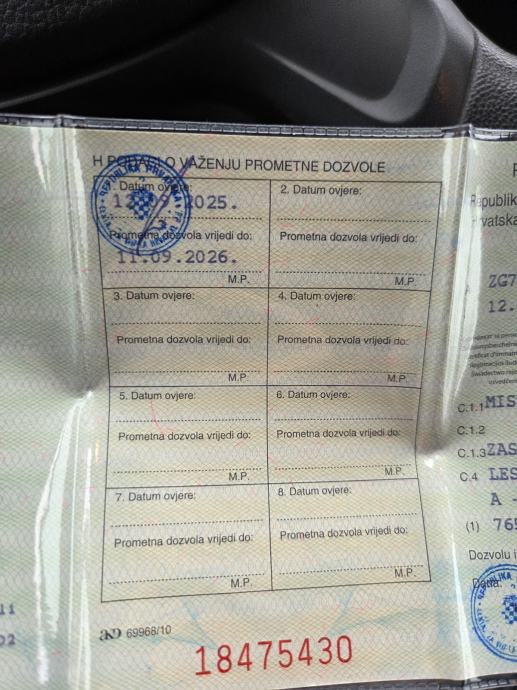 H PODACI O VAŽENJU PROMETNE DOZVOLE
1. Datum ovjere:
12.09.2025.
Prometna dozvola vrijedi do:
11.09.2026.
M.P.
2. Datum ovjere:
Prometna dozvola vrijedi do:
M.P.
3. Datum ovjere:
Prometna dozvola vrijedi do:
M.P.
4. Datum ovjere:
Prometna dozvola vrijedi do:
M.P.
5. Datum ovjere:
Prometna dozvola vrijedi do:
M.P.
6. Datum ovjere:
Prometna dozvola vrijedi do:
M.P.
7. Datum ovjere:
Prometna dozvola vrijedi do:
M.P.
8. Datum ovjere:
Prometna dozvola vrijedi do:
M.P.
AKD 69968/10
18475430
11
02
Republik
Hrvatska
ZG7
12.
C.1.1 MIS
C.1.2
C.1.3 ZAS
C.4 LES
A -
(1) 765
Dozvolu i
Datum
REPUBLIKA HRVATSKA